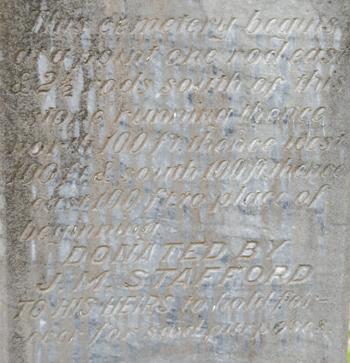 This cemetery begins
at a point one rod east
& 2½ rods south of this
stone running thence
north 100 ft thence west
100 ft & south 100 ft thence
east 100 ft to place of
beginning
DONATED BY
J. M. STAFFORD
TO HIS HEIRS to hold for-
ever for said purposes